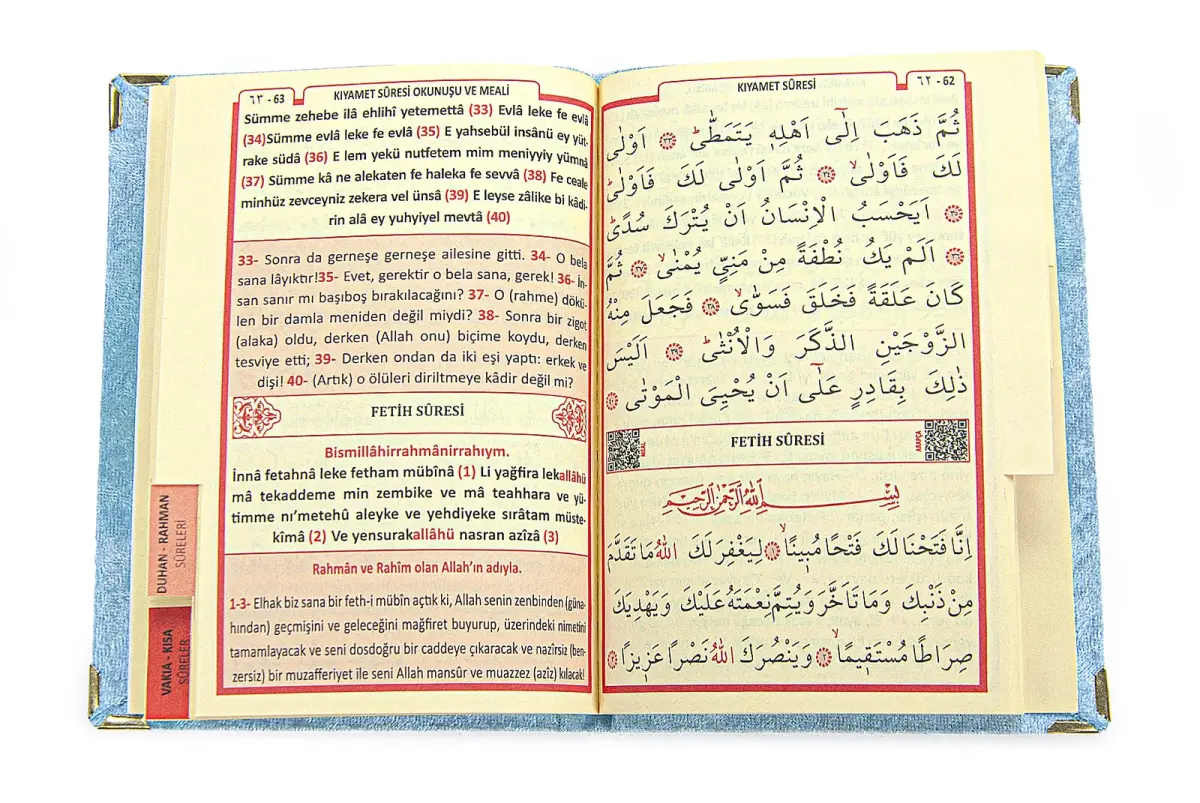 ٦٢ - 62
KIYAMET SÛRESİ
ثُمَّ ذَهَبَ اِلٰٓى اَهْلِه۪ يَتَمَطّٰىۜ ﴿٣٣﴾ اَوْلٰى
لَكَ فَاَوْلٰىۙ ﴿٣٤﴾ ثُمَّ اَوْلٰى لَكَ فَاَوْلٰىۜ
﴿٣٥﴾ اَيَحْسَبُ الْاِنْسَانُ اَنْ يُتْرَكَ سُدًىۜ
﴿٣٦﴾ اَلَمْ يَكُ نُطْفَةً مِنْ مَنِيٍّ يُمْنٰىۙ ﴿٣٧﴾ ثُمَّ
كَانَ عَلَقَةً فَخَلَقَ فَسَوّٰىۙ ﴿٣٨﴾ فَجَعَلَ مِنْهُ
الزَّوْجَيْنِ الذَّكَرَ وَالْاُنْثٰىۜ ﴿٣٩﴾ اَلَيْسَ
ذٰلِكَ بِقَادِرٍ عَلٰٓى اَنْ يُحْيِيَ الْمَوْتٰى ﴿٤٠﴾
MEAL
FETİH SÛRESİ
ARAPÇA
بِسْمِ اللّٰهِ الرَّحْمٰنِ الرَّح۪يمِ
اِنَّا فَتَحْنَا لَكَ فَتْحًا مُب۪ينًاۙ ﴿١﴾ لِيَغْفِرَ لَكَ اللّٰهُ مَا تَقَدَّمَ
مِنْ ذَنْبِكَ وَمَا تَاَخَّرَ وَيُتِمَّ نِعْمَتَهُ عَلَيْكَ وَيَهْدِيَكَ
صِرَاطًا مُسْتَق۪يمًاۙ ﴿٢﴾ وَيَنْصُرَكَ اللّٰهُ نَصْرًا عَز۪يزًا ﴿٣﴾
٦٣ - 63
KIYAMET SÛRESİ OKUNUŞU VE MEALİ
Sümme zehebe ilâ ehlihî yetemettâ (33) Evlâ leke fe evlâ
(34)Sümme evlâ leke fe evlâ (35) E yahsebül insânü ey yüt-
rake südâ (36) E lem yekü nutfetem mim meniyyiy yümnâ
(37) Sümme kâ ne alekaten fe haleka fe sevvâ (38) Fe ceale
minhüz zevceyniz zekera vel ünsâ (39) E leyse zâlike bi kâdi-
rin alâ ey yuhyiyel mevtâ (40)
33- Sonra da gerneşe gerneşe ailesine gitti. 34- O bela
sana lâyıktır!35- Evet, gerektir o bela sana, gerek! 36- İn-
san sanır mı başıboş bırakılacağını? 37- O (rahme) dökü-
len bir damla meniden değil miydi? 38- Sonra bir zigot
(alaka) oldu, derken (Allah onu) biçime koydu, derken
tesviye etti; 39- Derken ondan da iki eşi yaptı: erkek ve
dişi! 40- (Artık) o ölüleri diriltmeye kâdir değil mi?
FETİH SÛRESİ
Bismillâhirrahmânirrahıym.
İnnâ fetahnâ leke fetham mübînâ (1) Li yağfira lekallâhü
mâ tekaddeme min zembike ve mâ teahhara ve yü-
timme nı'metehû aleyke ve yehdiyeke sırâtam müste-
kîmâ (2) Ve yensurakallâhü nasran azîzâ (3)
Rahmân ve Rahîm olan Allah'ın adıyla.
1-3- Elhak biz sana bir feth-i mübîn açtık ki, Allah senin zenbinden (güna-
hından) geçmişini ve geleceğini mağfiret buyurup, üzerindeki nimetini
tamamlayacak ve seni dosdoğru bir caddeye çıkaracak ve nazirsiz (ben-
zersiz) bir muzafferiyet ile seni Allah mansûr ve muazzez (azîz) kılacak!
DUHAN - RAHMAN
SÛRELERİ
VAKIA - KISA
SÛRELER